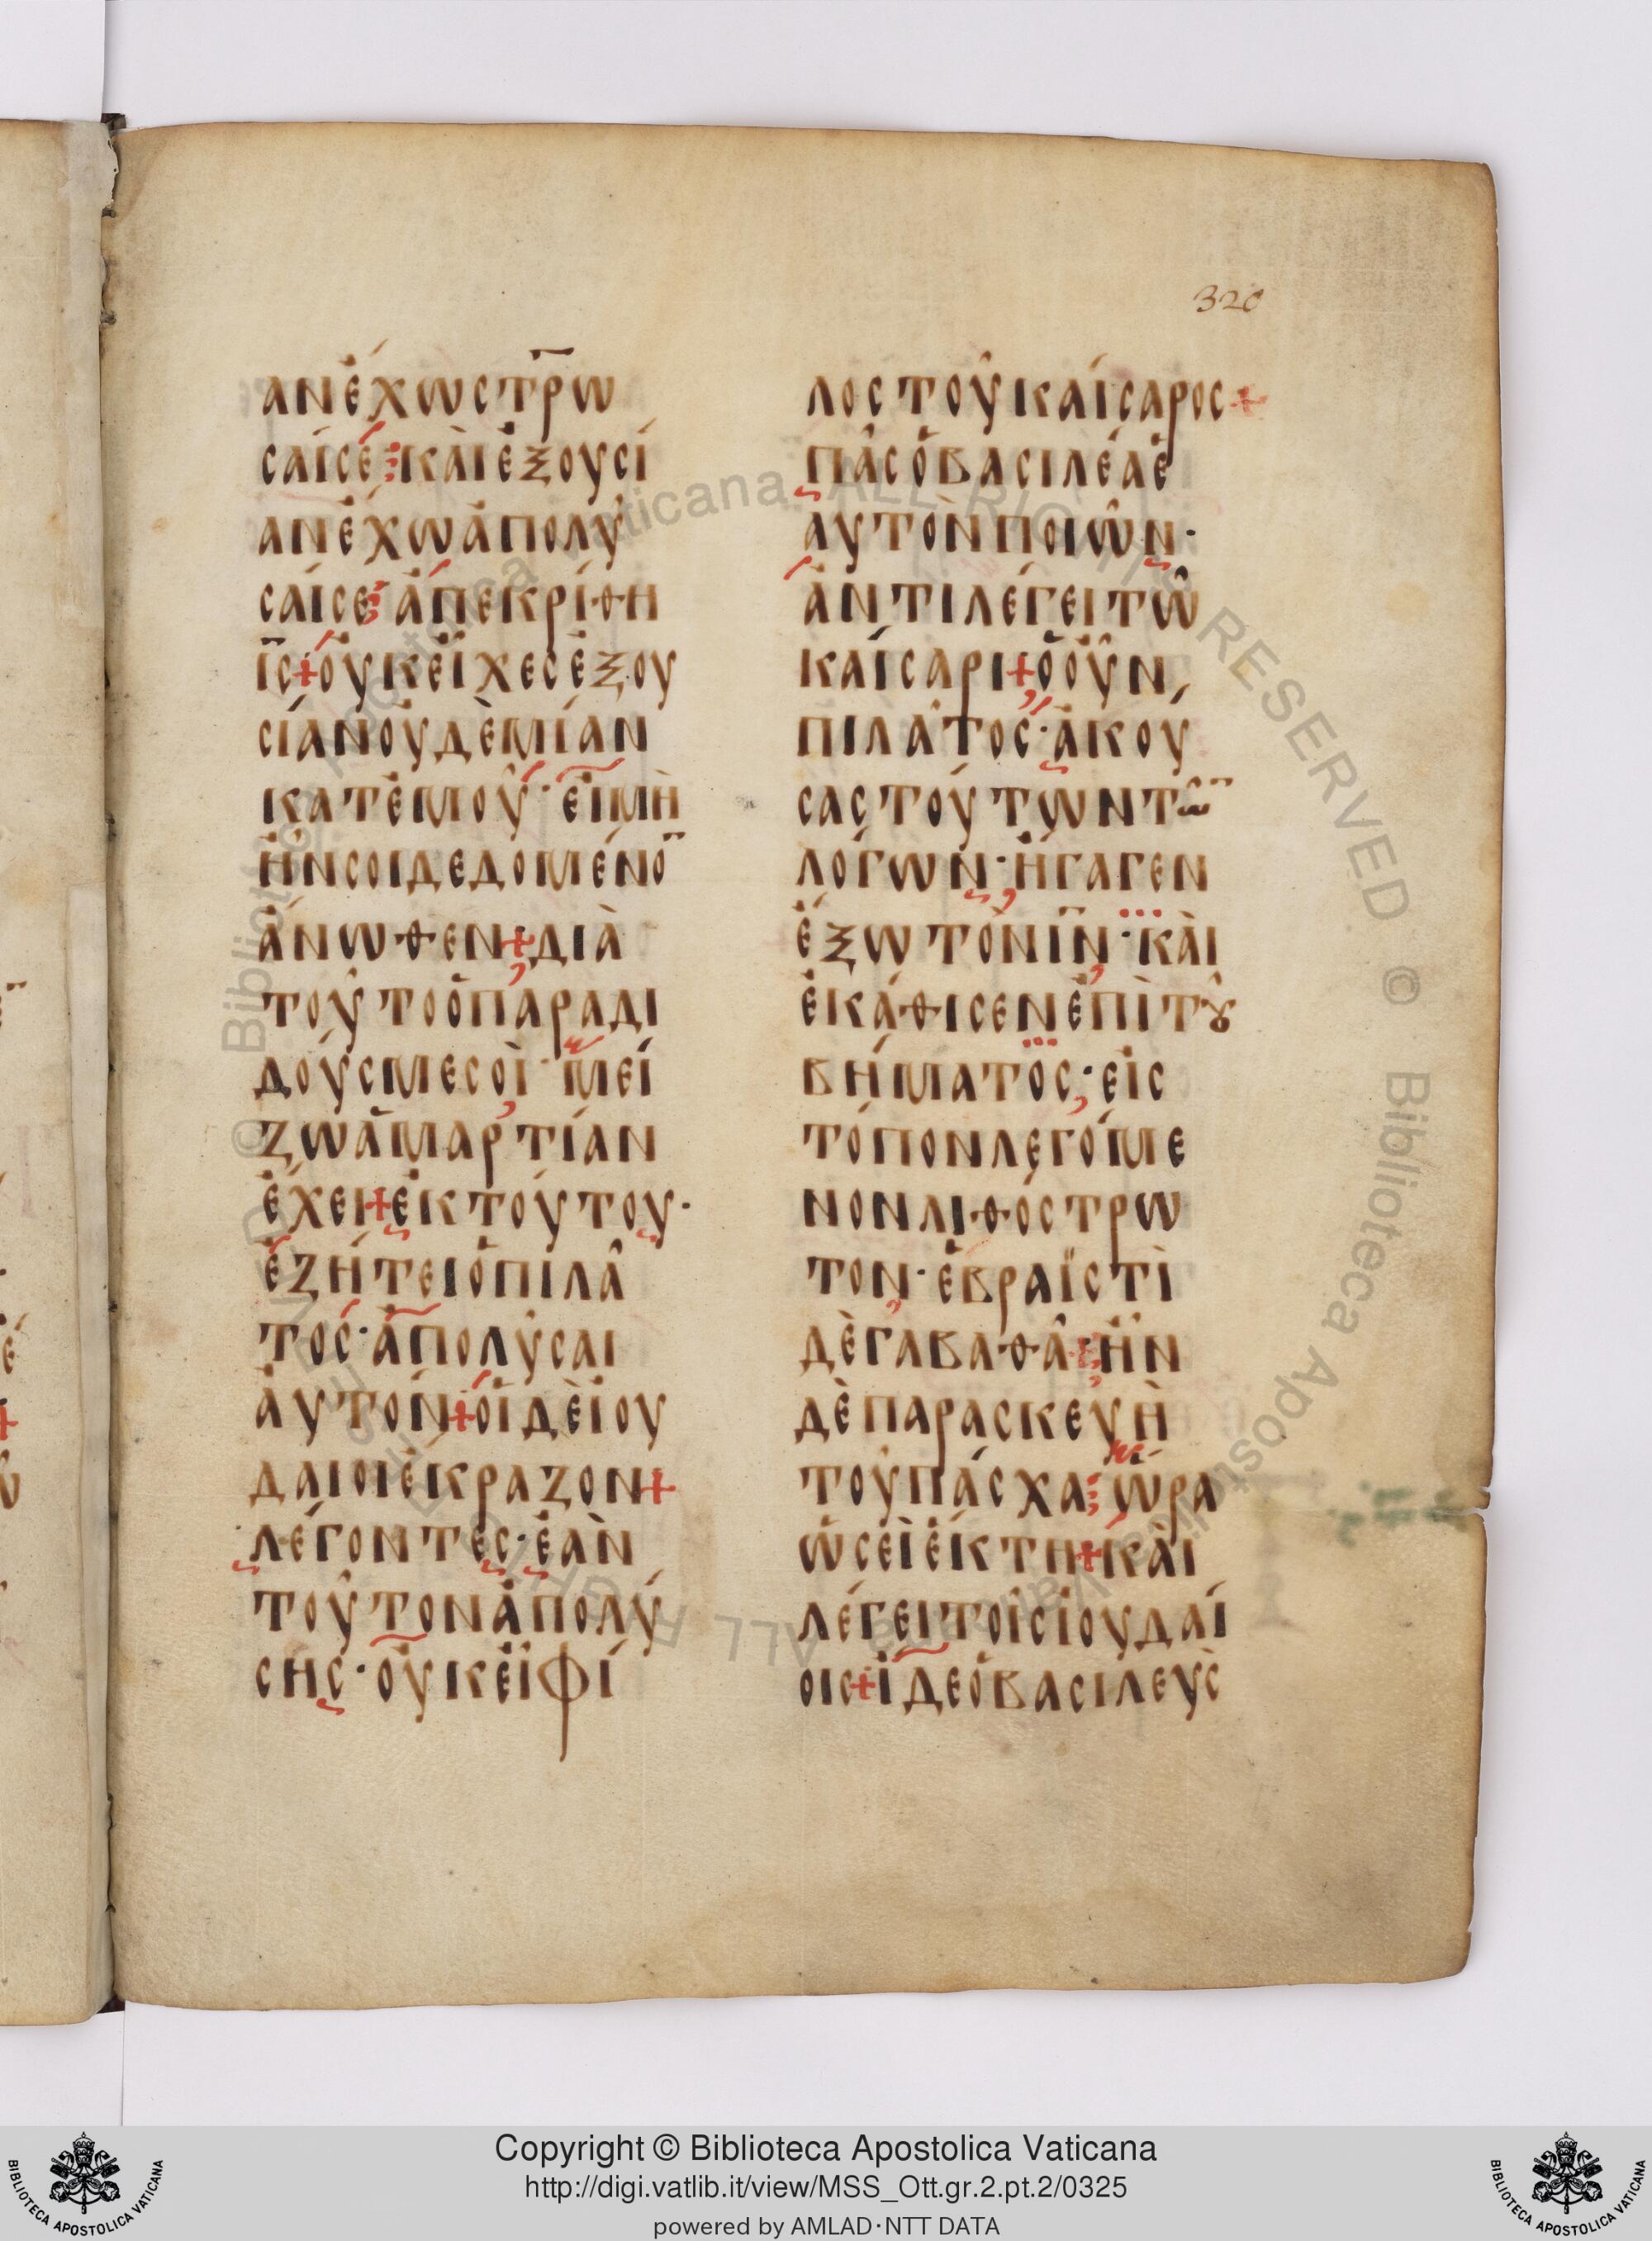 320
ἀνἔχωστρω
σαίσε⁝κὰιἐξουσί
ἀνἔχωἀπολῦ
σαίσε⁝ἀπεκρίθη
ι̅ς̅+οὐκεἶχεσἐξου
σίανὀυδὲμίαν
κατἐμοῦ·ἐιμὴ
ἦνσοιδεδομένο̅
ἄνωθεν+διὰ
τοῦτοὁπαραδι
δούσμεσοὶ·μεί
ζωἁμαρτίαν
ἔχει+ἐκτούτου·
ἐζήτειὁπιλᾶ
τος·ἀπολῦσαι
ἀυτόν+ὁιδὲϊου
δαιοιἔκραζον+
λέγοντες·ἐὰν
τοῦτονἀπολύ
σῃς·ὀυκεἶφί
λοςτοῦκαίσαρος+
πᾶςὁβασιλέαἑ
αυτὸνποιῶν·
ἀντιλέγειτῶ
καίσαρι+ὁοῦν
πιλᾶτος·ἀκού
σαςτούτωντῶ̅
λόγων·ἤγαγεν
ἔξωτὸνι̅ν̅·κὰι
ἐκάθισενἐπὶτȣ
βήματος·ἐις
τόπονλεγόμε
νονλιθόστρω
τον·ἑβραϊστὶ
δὲγαβαθᾶ⁝ἦν
δὲπαρασκευὴ
τοῦπάσχα⁝ὥρα
ὡσεὶἕκτη+κὰι
λέγειτοῖςϊουδαί
οις+ἴδεὁβασιλεὺς
Copyright © Biblioteca Apostolica Vaticana
http://digi.vatlib.it/view/MSS_Ott.gr.2.pt.2/0325
powered by AMLAD·NTT DATA
BIBLIOTECA APOSTOLICA VATICANA
BIBLIOTECA APOSTOLICA VATICANA